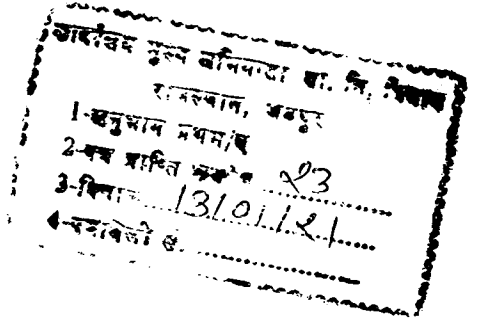 कार्यालय मुख्य अभियन्ता सा. नि. विभाग
राजस्थान, जयपुर
1-अनुभाग प्रथम/
2-पत्र प्राप्ति 23
3-दिनांक 13/01/21
4-पत्रावली सं.